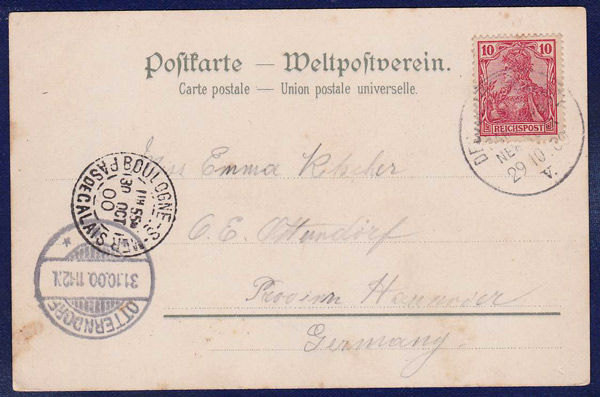 Postkarte — Weltpostverein.
Carte postale — Union postale universelle.
10 10
REICHSPOST
DE
NEW
29 10
V.
BOULOGNE-S-MER
PAS DE CALAIS
30 OCT
00
OTTERNDORF
31.10.00.11-12V.
Miss Emma
C. E. Otterndorf
Provinz Hannover
Germany.